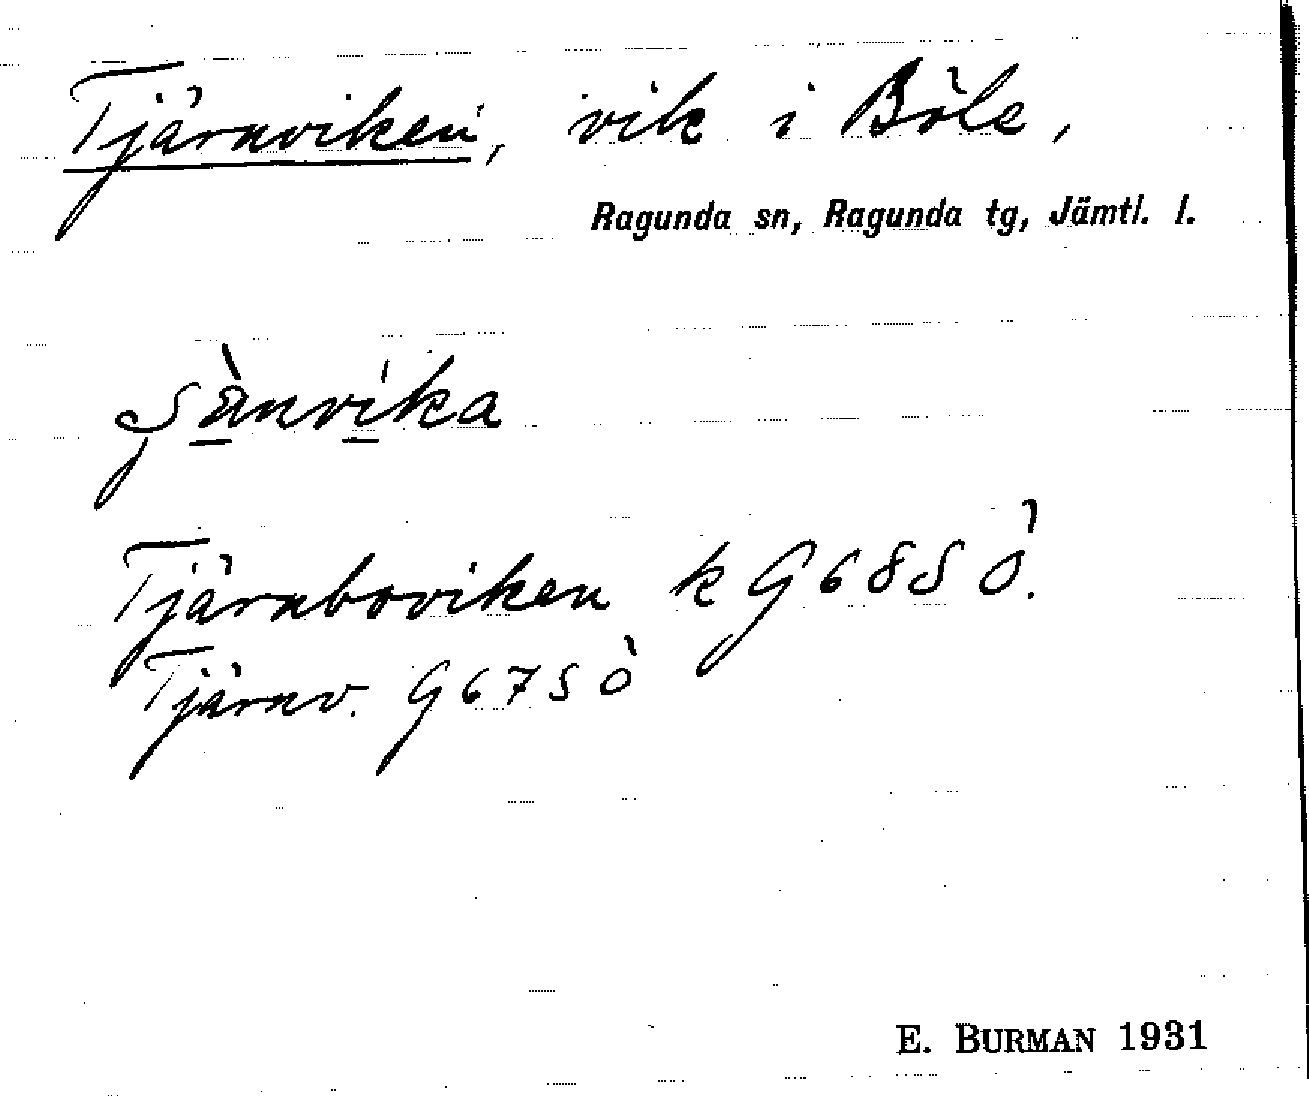 Tjärnviken, vik i Böle,
Ragunda sn, Ragunda tg, Jämtl. l.
Tjärnboviken k G68SÖ.
Tjärnv. G67SÖ
E. BURMAN 1931